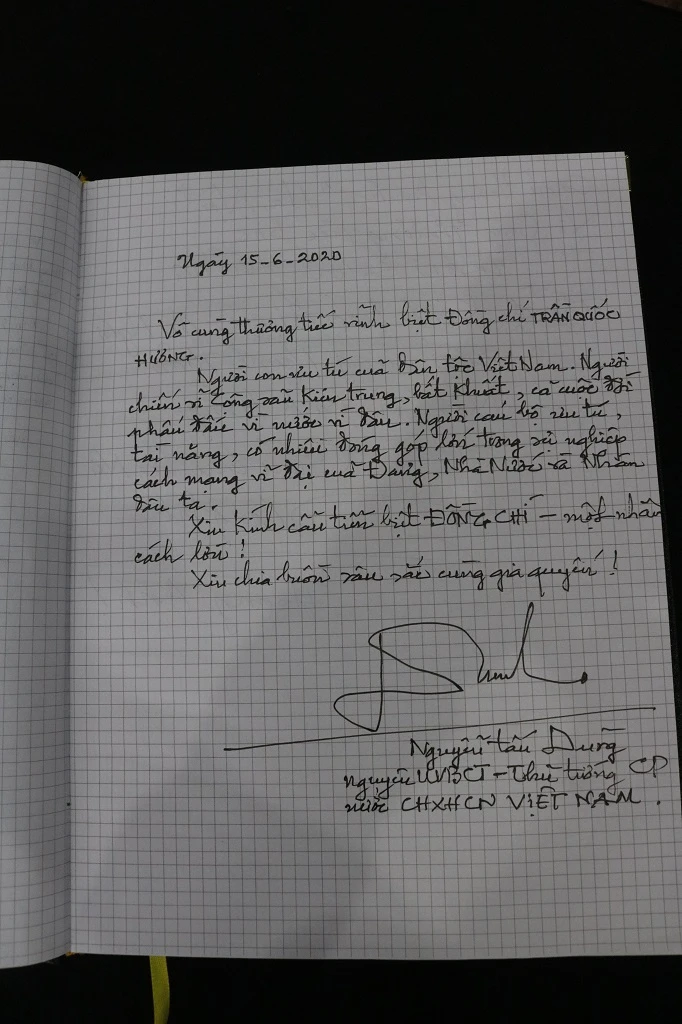 Ngày 15-6-2020
Vô cùng thương tiếc vĩnh biệt Đồng chí TRẦN QUỐC
HƯƠNG.
Người con ưu tú của Dân tộc Việt Nam. Người
chiến sĩ Cộng sản Kiên trung, bất Khuất, cả cuộc đời
phấn đấu vì nước vì dân. Người cán bộ ưu tú,
tài năng, có nhiều đóng góp lớn trong sự nghiệp
cách mạng vĩ đại của Đảng, Nhà Nước và Nhân
dân ta.
Xin Kính cẩn tiễn biệt ĐỒNG CHÍ - một nhân
cách lớn!
Xin chia buồn sâu sắc cùng gia quyến!
Nguyễn tấn Dũng
nguyên UVBCT - Thủ tướng CP
nước CHXHCN VIỆT NAM.